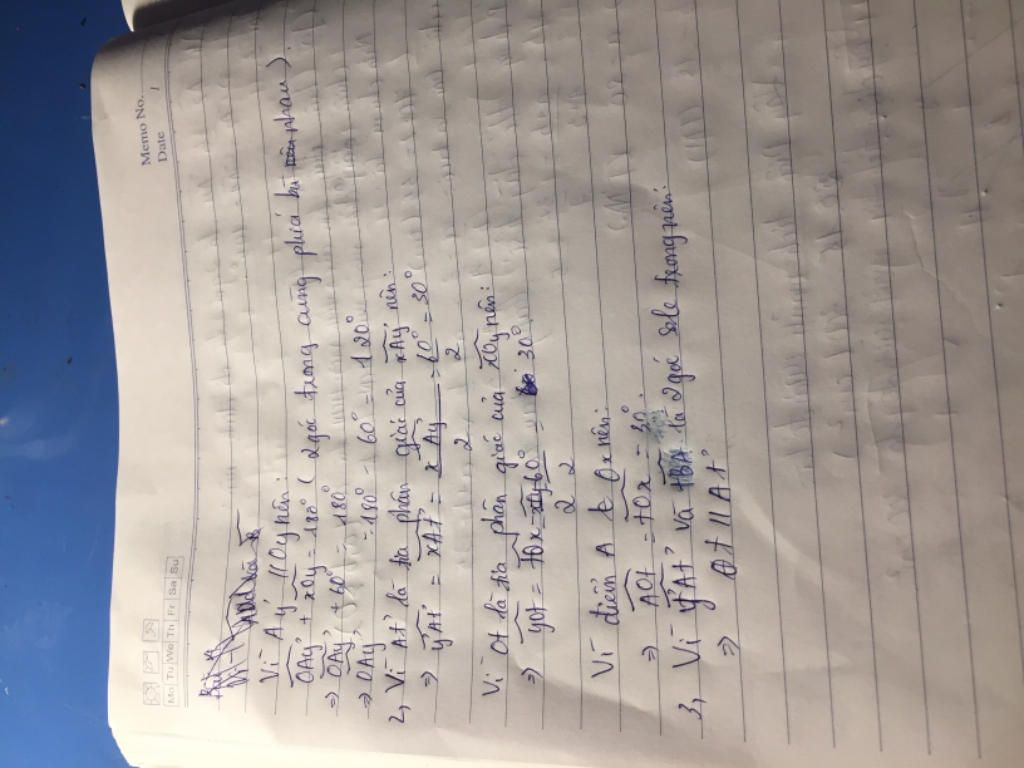 Memo No.
Date /
Mo Tu We Th Fr Sa Su
Vì Ay' // Oy nên:
OAy' + xOy = 180° ( 2 góc trong cùng phía bù nhau )
⇒ OAy' + 60° = 180°
⇒ OAy' = 180° - 60° = 120°
2, Vì At' là tia phân giác của xAy' nên:
⇒ y'At' = xAt' = xAy'/2 = 60°/2 = 30°
Vì Ot là tia phân giác của xOy nên:
⇒ yOt = tOx = xOy/2 60°/2 = 30°
Vì điểm A € Ox nên:
⇒ AOt = tOx = 30°.
3, Vì y'At' và tBA là 2 góc sole trong nên:
⇒ Ot // At'